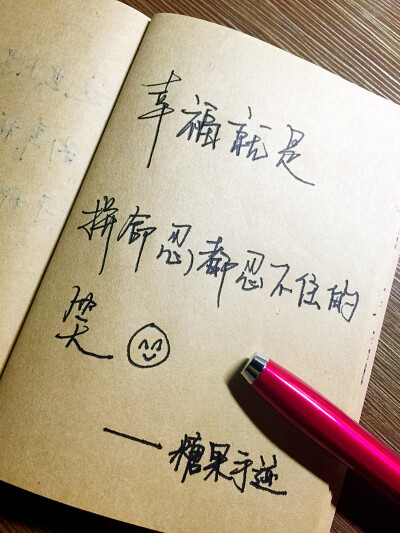 幸福就是
拼命忍,都忍不住的
笑
——糖果手迹